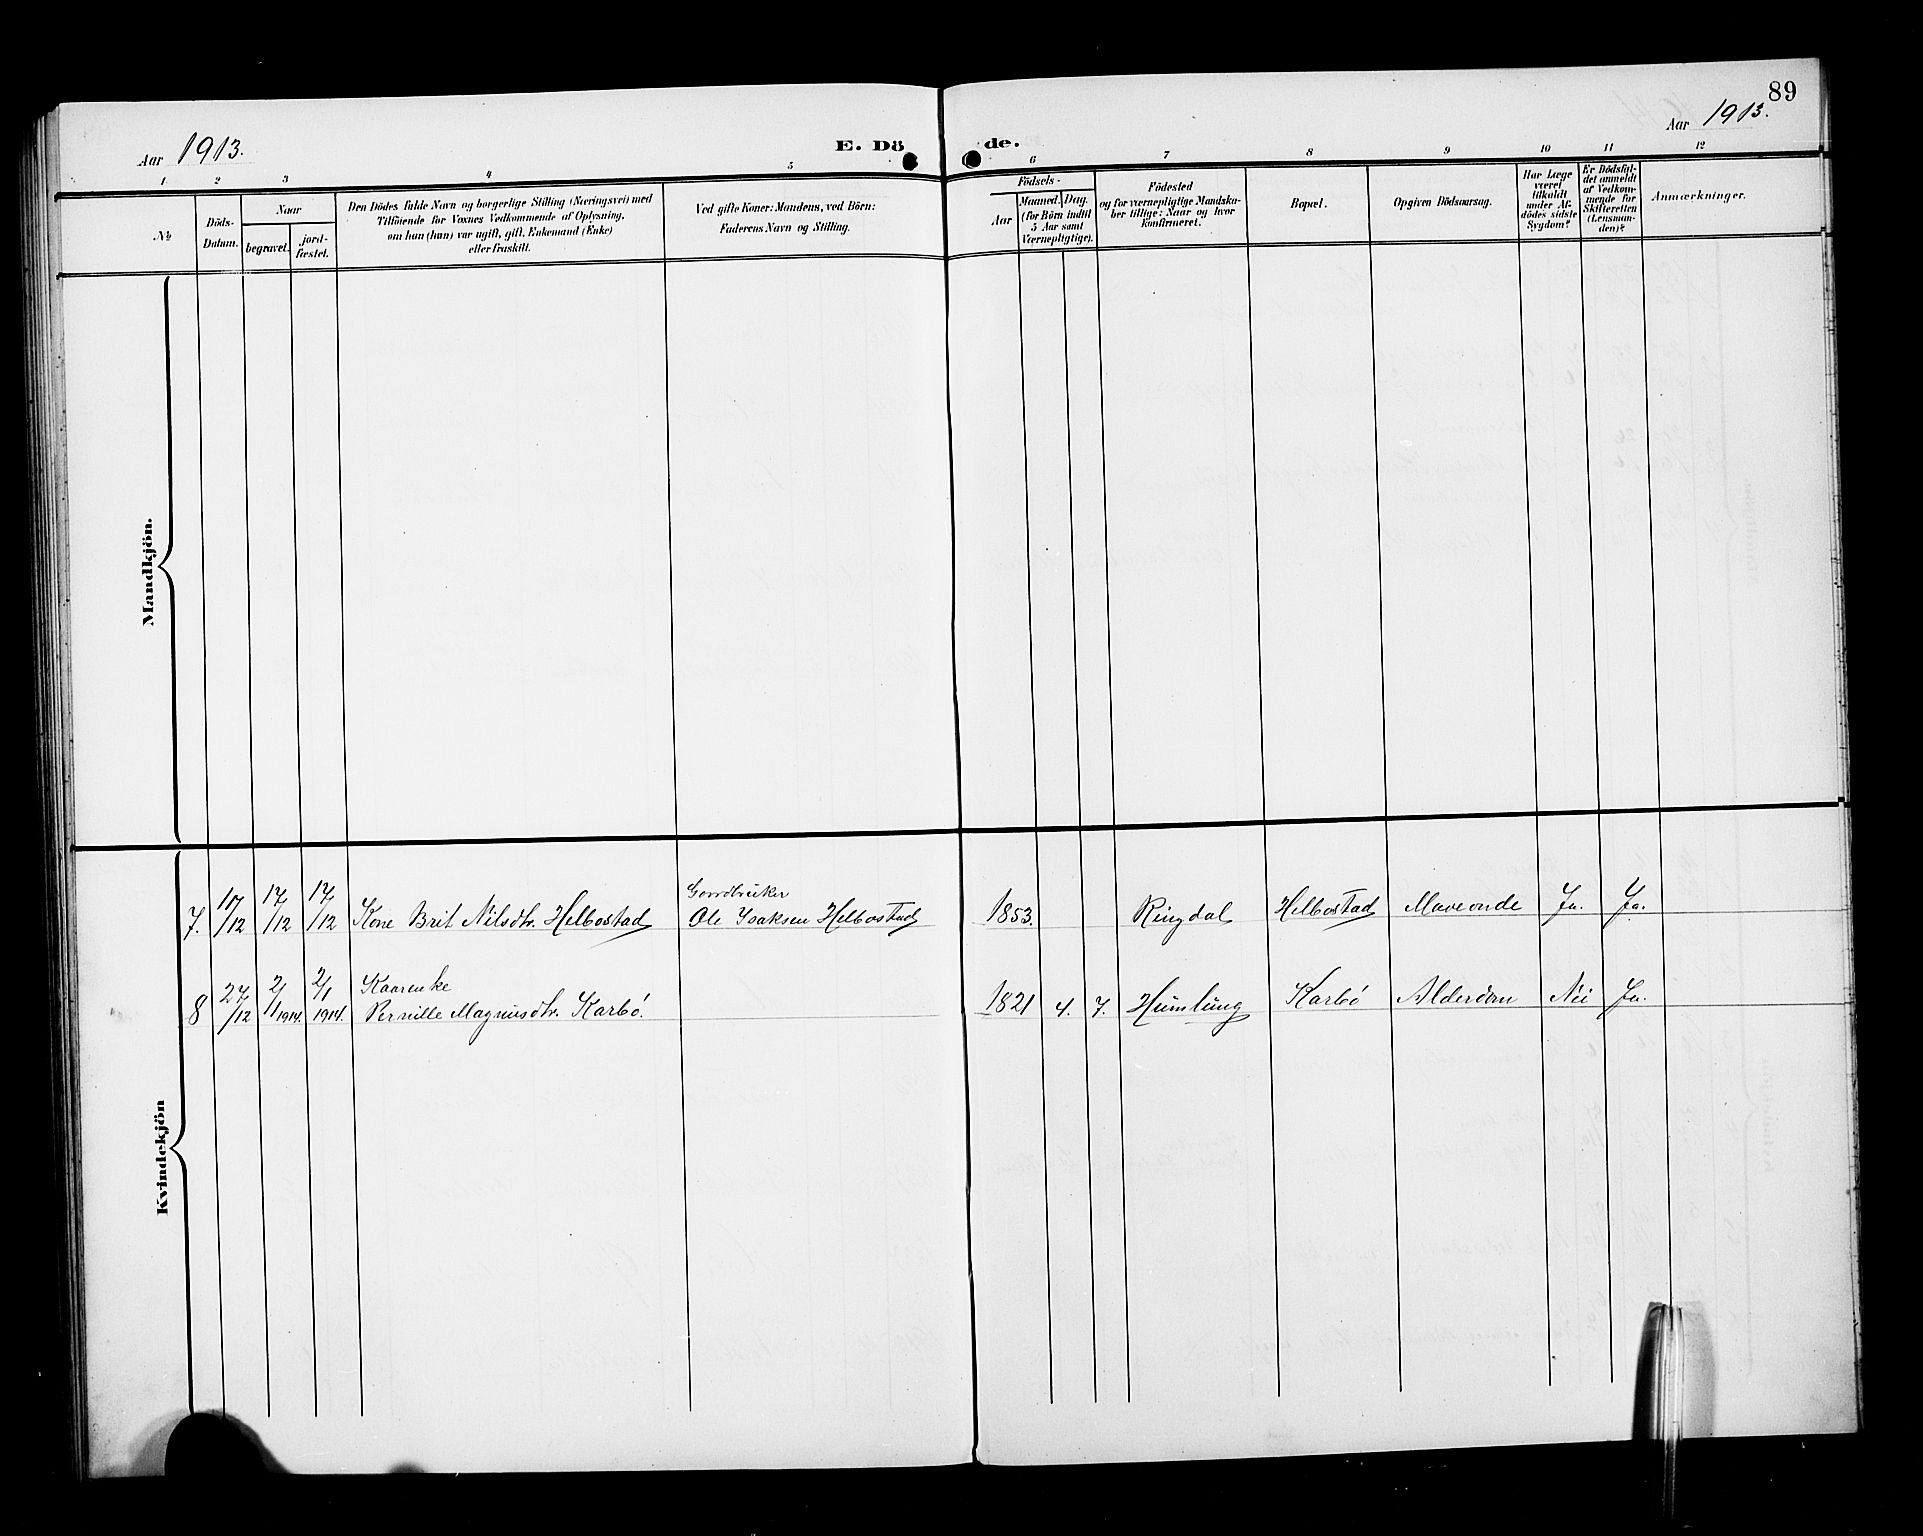 89
Aar 1913.
E. Dö de.
Aar 1913.
1 2 3 4 5 6 7 8 9 10 11 12
№
Döds-
Datum.
Naar
begravet.
jord-
fæstet.
Den Dödes fulde Navn og borgerlige Stilling (Næringsvei) med
Tilföiende for Voxnes Vedkommende af Oplysning,
om han (hun) var ugift, gift, Enkemand (Enke)
eller fraskilt.
Ved gifte Koner: Mandens, ved Börn:
Faderens Navn og Stilling.
Födsels-
Aar
Maaned. Dag.
(for Börn indtil
5 Aar samt
Værnepligtige).
Födested
og for værnepligtige Mandska-
ber tillige: Naar og hvor
konfirmeret.
Bopæl.
Opgiven Dödsaarsag.
Har Læge
været
tilkaldt
under Af-
dödes sidste
Sygdom?
Er Dödsfal-
det anmeldt
af Vedkom-
mende for
Skifteretten
(Lensman-
den)?
Anmærkninger.
Mandkjön.
Kvindekjön
7. 10/12 17/12 17/12 Kone Brit Nilsdtr. Helbostad
Gaardbruker
Ole Isaksen Helbostad
1853. Ringdal Helbostad Maveonde Ja. Ja.
8 27/12 2/1 1914. 2/1 1914.
Kaarenke
Pernille Magnusdtr. Karbø.
1821 4. 7. Humlung Karbø Alderdom Nei Ja.